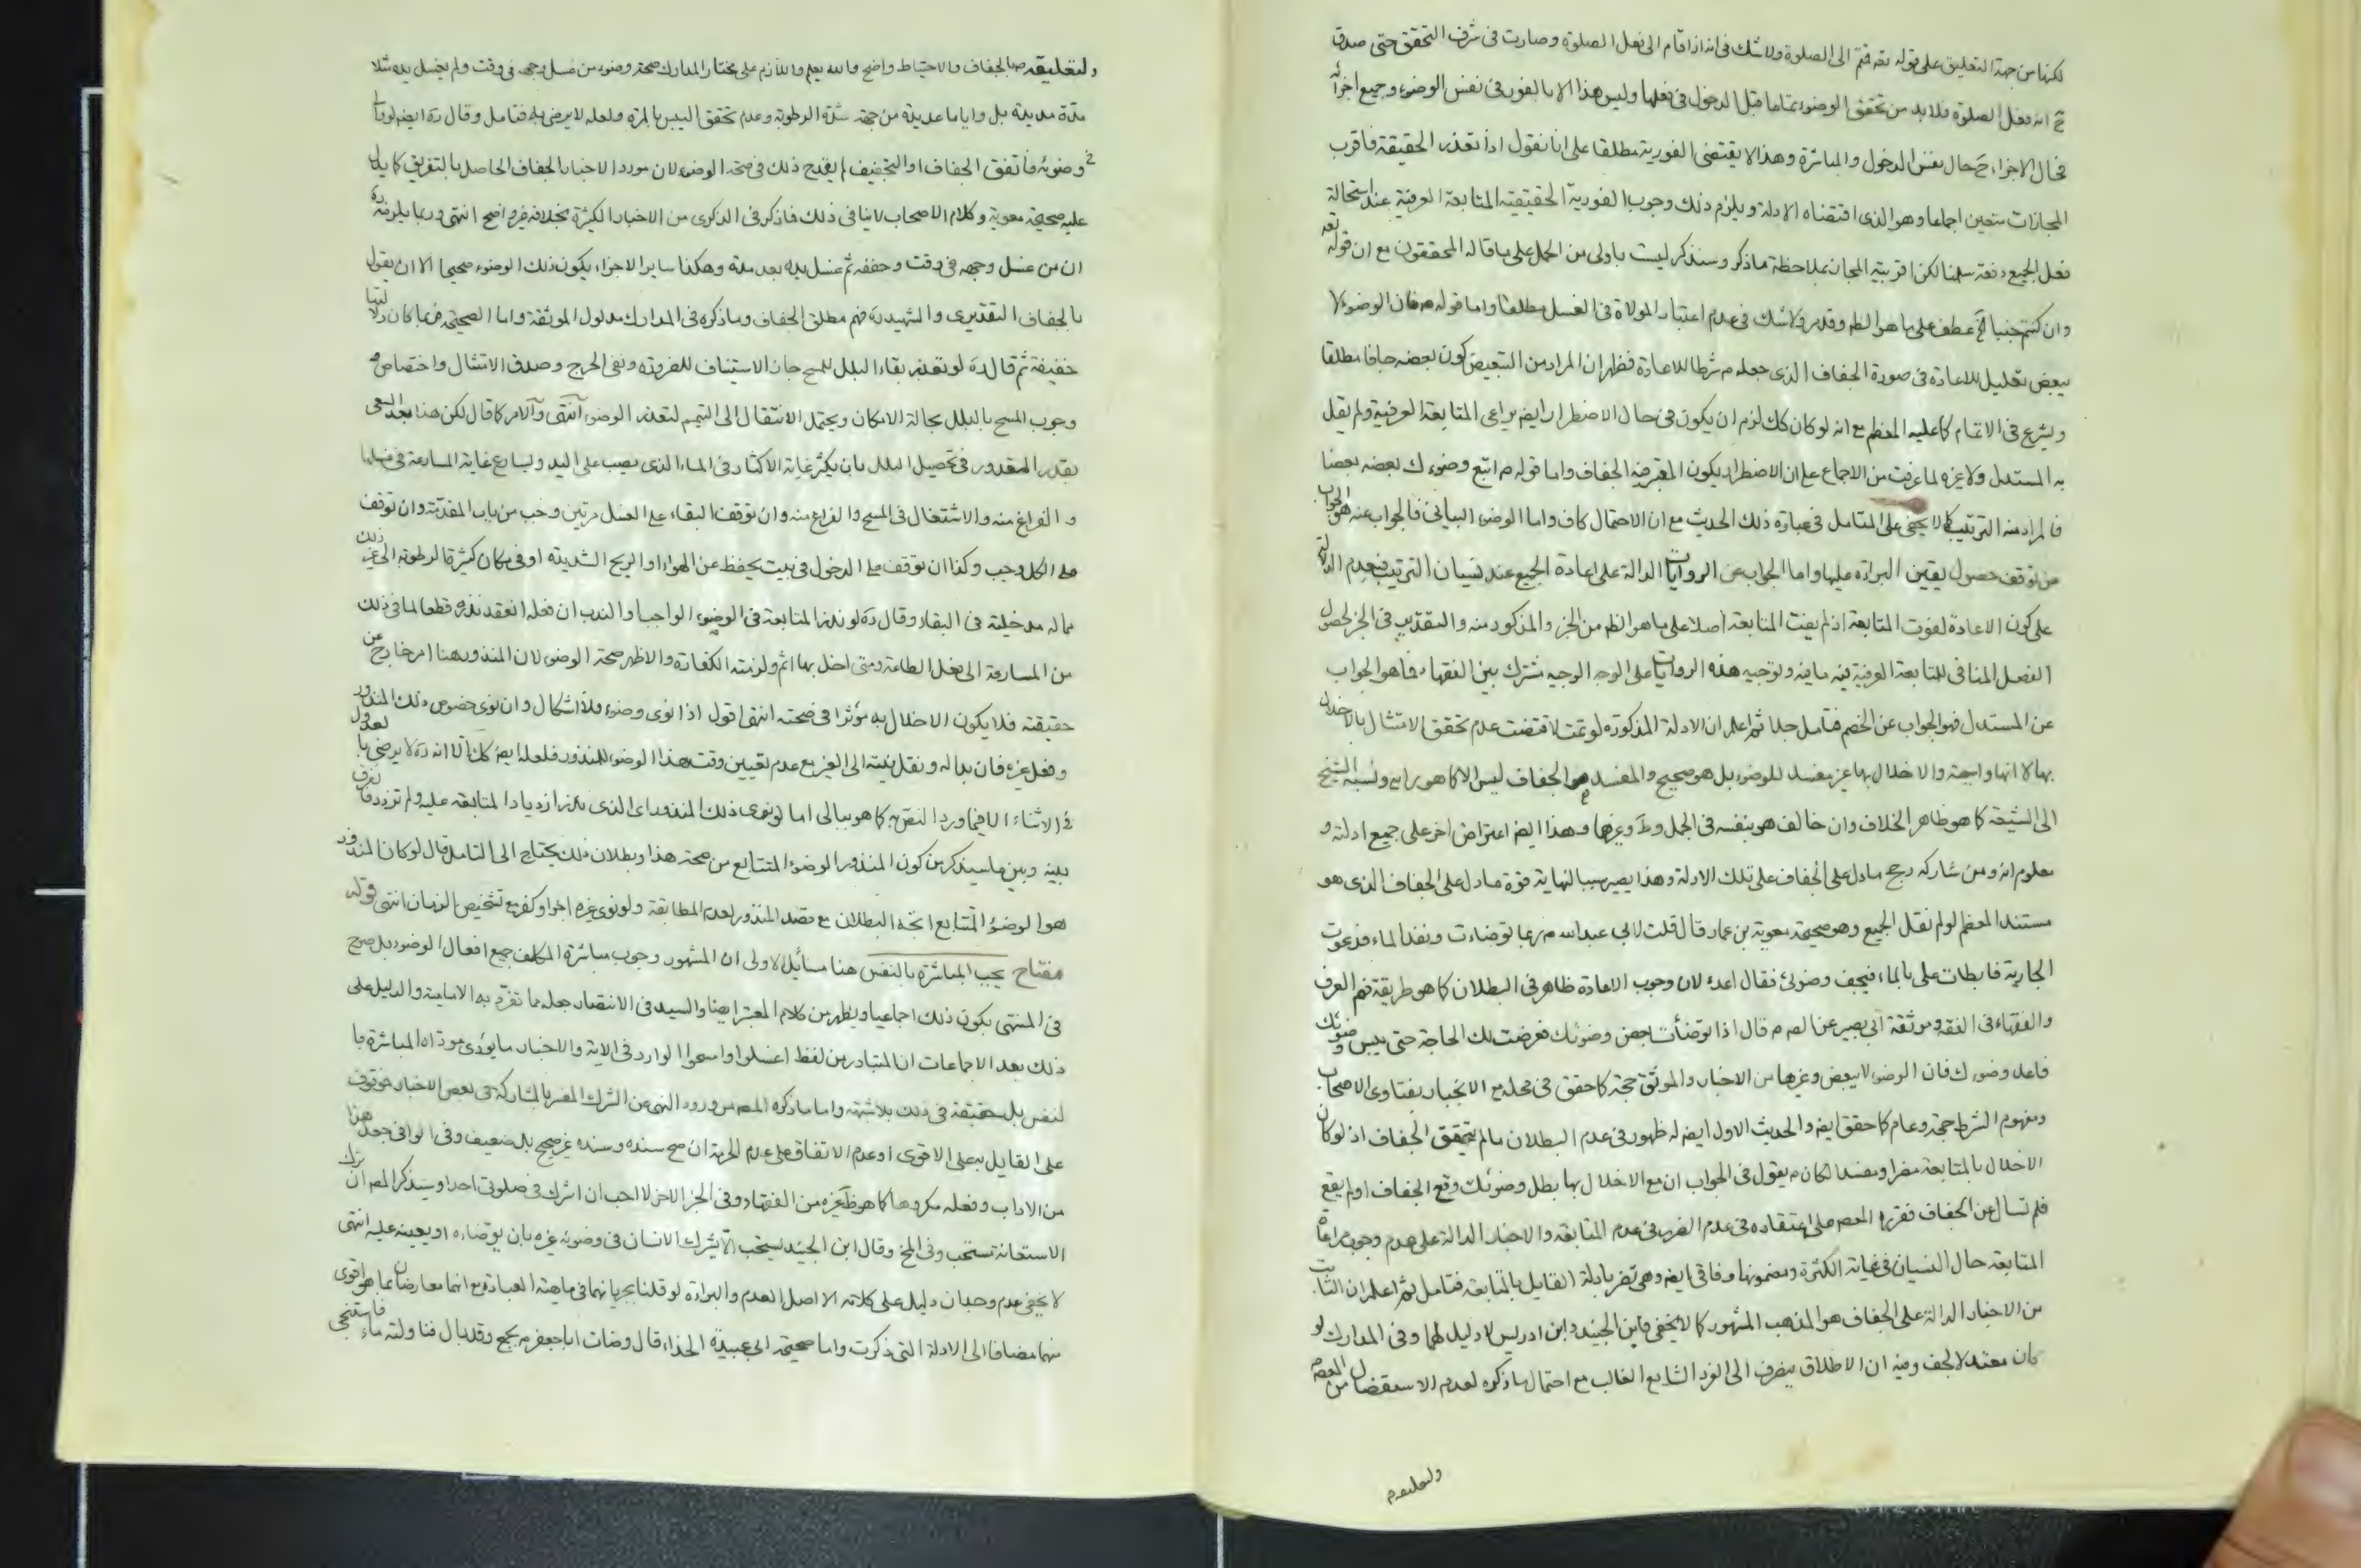 لكنها من جهة التعليق على قوله تعه قمتم الى الصلوة ولا شك فى انه اذا قام الى فعل الصلوة وصارت فى شرف التحقق حتى صدق
انه فعل الصلوة فلا بد من تحقق الوضوء بتمامها قبل الدخول فى فعلها وليس هذا الا بالفور فى نفس الوضوء وجميع اجزائه
فحال الاجزاء ح حال نفس الدخول والمباشرة وهذا لا يقتضى الفورية مطلقا على انا نقول اذا تعذر الحقيقة فاقرب
المجازات متعين اجماعا وهو الذى اقتضاه الادلة ويلزم ذلك وجوب الفورية الحقيقية المتابعة العرفية عند استحالة
فعل الجميع دفعة سلمنا لكن اقربية المجاز بملاحظة ما ذكر وسنذكر ليست باولى من الحمل على ما قاله المحققون مع ان قوله تعه
وان كنتم جنبا الخ عطف على ما هو الظم وقد مر ولا شك فى عدم اعتبار الموالاة فى الغسل مطلقا واما قوله م فان الوضوء لا
يبعض تعليل للاعادة فى صورة الجفاف الذى جعله م شرطا للاعادة فظهر ان المراد من التبعيض كون بعضه جافا مطلقا
ويشرع فى الاتمام كما عليه المعظم مع انه لو كان كك لزم ان يكون فى حال الاضطرار ايضم يراعى المتابعة العرفية ولم يقل
به المستدل ولا غيره لما عرفت من الاجماع على ان الاضطرار يكون المعتبر فيه الجفاف واما قوله م اتبع وضوءك بعضه بعضا
فالمراد منه الترتيب كما لا يخفى على المتامل فى عبارة ذلك الحديث مع ان الاحتمال كاف واما الوضوء البيانى فالجواب عنه هو الجواب
عن توقف حصول يقين البراءة عليها واما الجواب عن الروايات الدالة على اعادة الجميع عند نسيان الترتيب فبعدم الدلالة
على كون الاعادة لفوت المتابعة اذ لم يفت المتابعة اصلا على ما هو الظم من الخبر والمذكور منه والتقديم فى الجزء لحصول
الفصل المنافى للمتابعة العرفية فيه ما فيه وتوجيه هذه الروايات على الوجه الوجيه مشترك بين الفقهاء فما هو الجواب
عن المستدل فهو الجواب عن الخصم فتامل جدا ثم اعلم ان الادلة المذكورة لو تمت لاقتضت عدم تحقق الامتثال بالاخلال
بها لا انها واجبة والاخلال بها غير مفسد للوضوء بل هو صحيح والمفسد هو الجفاف ليس الا كما هو رايه ونسبه الشيخ
الى الشيعة كما هو ظاهر الخلاف وان خالف هو بنفسه فى الجمل وط وغيرها وهذا ايضم اعتراض اخر على جميع ادلته و
معلوم انه ومن شاركه رجح ما دل على الجفاف على تلك الادلة وهذا يصير سببا لنهاية قوة ما دل على الجفاف الذى هو
مستند المعظم لو لم نقل الجميع وهو صحيحة معوية بن عمار قال قلت لابى عبد الله م ربما توضات ونفد الماء فدعوت
الجارية فابطات على بالماء فيجف وضوئى فقال اعده لان وجوب الاعادة ظاهر فى البطلان كما هو طريقة فهم العرف
والفقهاء فى الفقه وموثقة ابى بصير عن الصم م قال اذا توضأت بعض وضوئك فعرضت لك الحاجة حتى يبس وضوئك
فاعد وضوءك فان الوضوء لا يبعض وغيرها من الاخبار والموثق حجة كما حقق فى محله مع الانجبار بفتاوى الاصحاب
ومفهوم الشرط حجة وعام كما حقق ايضم والحديث الاول ايضم له ظهور فى عدم البطلان ما لم يتحقق الجفاف اذ لو كان
الاخلال بالمتابعة مضرا ومفسدا لكان م يقول فى الجواب ان مع الاخلال بها بطل وضوئك وقع الجفاف او لم يقع
فلم تسال عن الجفاف فقرره المعصم على اعتقاده فى عدم الضرر فى عدم المتابعة والاخبار الدالة على عدم وجوب مراعاة
المتابعة حال النسيان فى غاية الكثرة ومضمونها وفاقى ايضم وهى تضر بادلة القايل بالمتابعة فتامل ثم اعلم ان الثابت
من الاخبار الدالة على الجفاف هو المذهب المشهور كما لا يخفى فابن الجنيد وابن ادريس لا دليل لهما وفى المدارك لو
كان معتدلا لجف وفيه ان الاطلاق ينصرف الى الفرد الشايع الغالب مع احتمال ما ذكره لعدم الاستفصال من المعصم
ولتعليقه م
ولتعليقه م بالجفاف والاحتياط واضح والله يعلم واللازم على مختار المدارك صحة وضوء من غسل وجهه فى وقت ولم يغسل يده مثلا
مدة مديدة بل واياما عديدة من جهة شدة الرطوبة وعدم تحقق اليبس بالمرة ولعله لا يرضى به فتامل وقال ره ايضم لو والى
فى وضوئه فاتفق الجفاف او التجفيف لم يقدح ذلك فى صحة الوضوء لان مورد الاخبار الجفاف الحاصل بالتفريق كما يدل
عليه صحيحة معوية وكلام الاصحاب لا ينافى ذلك فما ذكره فى الذكرى من الاخبار الكثيرة بخلافه غير واضح انتهى وربما يلزمه ره
ان من غسل وجهه فى وقت وجففه ثم غسل يده بعد مدة وهكذا ساير الاجزاء يكون ذلك الوضوء صحيحا الا ان يقول
بالجفاف التقديرى والشهيد ره فهم مطلق الجفاف وما ذكره فى المدارك مدلول الموثقة واما الصحيحة فربما كان دلالتها
خفيفة ثم قال ره لو تعذر بقاء البلل للمسح جاز الاستيناف للضرورة ونفى الحرج وصدق الامتثال واختصاص
وجوب المسح بالبلل بحالة الامكان ويحتمل الانتقال الى التيمم لتعذر الوضوء انتهى والامر كما قال لكن هذا بعد السعى
بقدر المقدور فى تحصيل البلل بان يكثر غاية الاكثار فى الماء الذى يصب على اليد ويسارع غاية المسارعة فى غسلها
والفراغ منه والاشتغال فى المسح والفراغ منه وان توقف البقاء على الغسل مرتين وجب من باب المقدمة وان توقف
على الكل وجب وكذا ان توقف على الدخول فى بيت يحفظ عن الهواء او الريح الشديدة او فى مكان كثيرة الرطوبة الى غير ذلك
مما له مدخلية فى البقاء وقال ره لو نذر المتابعة فى الوضوء الواجب او الندب ان فعله انعقد نذره قطعا لما فى ذلك
من المسارعة الى فعل الطاعة ومتى اخل بها اثم ولزمته الكفارة والاظهر صحة الوضوء لان المنذور هنا امر خارج عن
حقيقته فلا يكون الاخلال به مؤثرا فى صحته انتهى اقول اذا نوى وضوء فلا اشكال وان نوى خصوص ذلك المنذور
وفعل غيره فان بدا له ونقل نيته الى الغير مع عدم تعيين وقت هذا الوضوء للمنذور فلعله ايضم كك الا انه ره لا يرضى بالعدول
فى الاثناء الا فيما ورد النص به كما هو ببالى اما لو نوى ذلك المنذور اى الذى نذر ازدياد المتابعة عليه ولم تزدد فالفرق
بينه وبين ما سيذكر من كون المنذور الوضوء المتتابع من صحة هذا وبطلان ذلك يحتاج الى التامل قال لو كان المنذور
هو الوضوء المتتابع اتجه البطلان مع قصد المنذور لعدم المطابقة ولو نوى غيره اجزا وكفر مع تشخيص الزمان انتهى قوله
مفتاح يجب المباشرة بالنفس هنا مسائل الاولى ان المشهور وجوب مباشرة المكلف جميع افعال الوضوء بل صرح
فى المنتهى بكون ذلك اجماعيا ويظهر من كلام المعتبر ايضا والسيد فى الانتصار جعله مما تفرد به الامامية والدليل على
ذلك بعد الاجماعات ان المتبادر من لفظ اغسلوا وامسحوا الوارد فى الاية والاخبار ما يؤدى موداه المباشرة با
لنفس بل حقيقة فى ذلك بلا شبهة واما ما ذكره المصم من ورود النهى عن الشرك المفسر بالمشاركة فى بعض الاخبار فموقوف
على القايل به على الاقوى او عدم الاتفاق على عدم الحرمة ان صح سنده وسنده غير صحيح بل ضعيف وفى الوافى جعل هذا
من الاداب وفعله مكروها كما هو ظ غيره من الفقهاء وفى الخبر الاخر لا احب ان اشرك فى صلوتى احدا وسيذكر المصم ان ترك
الاستعانة مستحب وفى المخ وقال ابن الجنيد يستحب الا يشرك الانسان فى وضوئه غيره بان يوضاه او يعينه عليه انتهى
لا يخفى عدم وجدان دليل على كلامه الا اصل العدم والبراءة لو قلنا بجريانهما فى ماهية العبادة مع انهما معارضان بما هو اقوى
منهما مضافا الى الادلة التى ذكرت واما صحيحة ابى عبيدة الحذاء قال وضات ابا جعفر م بجمع وقد بال فناولته ماء فاستنجى